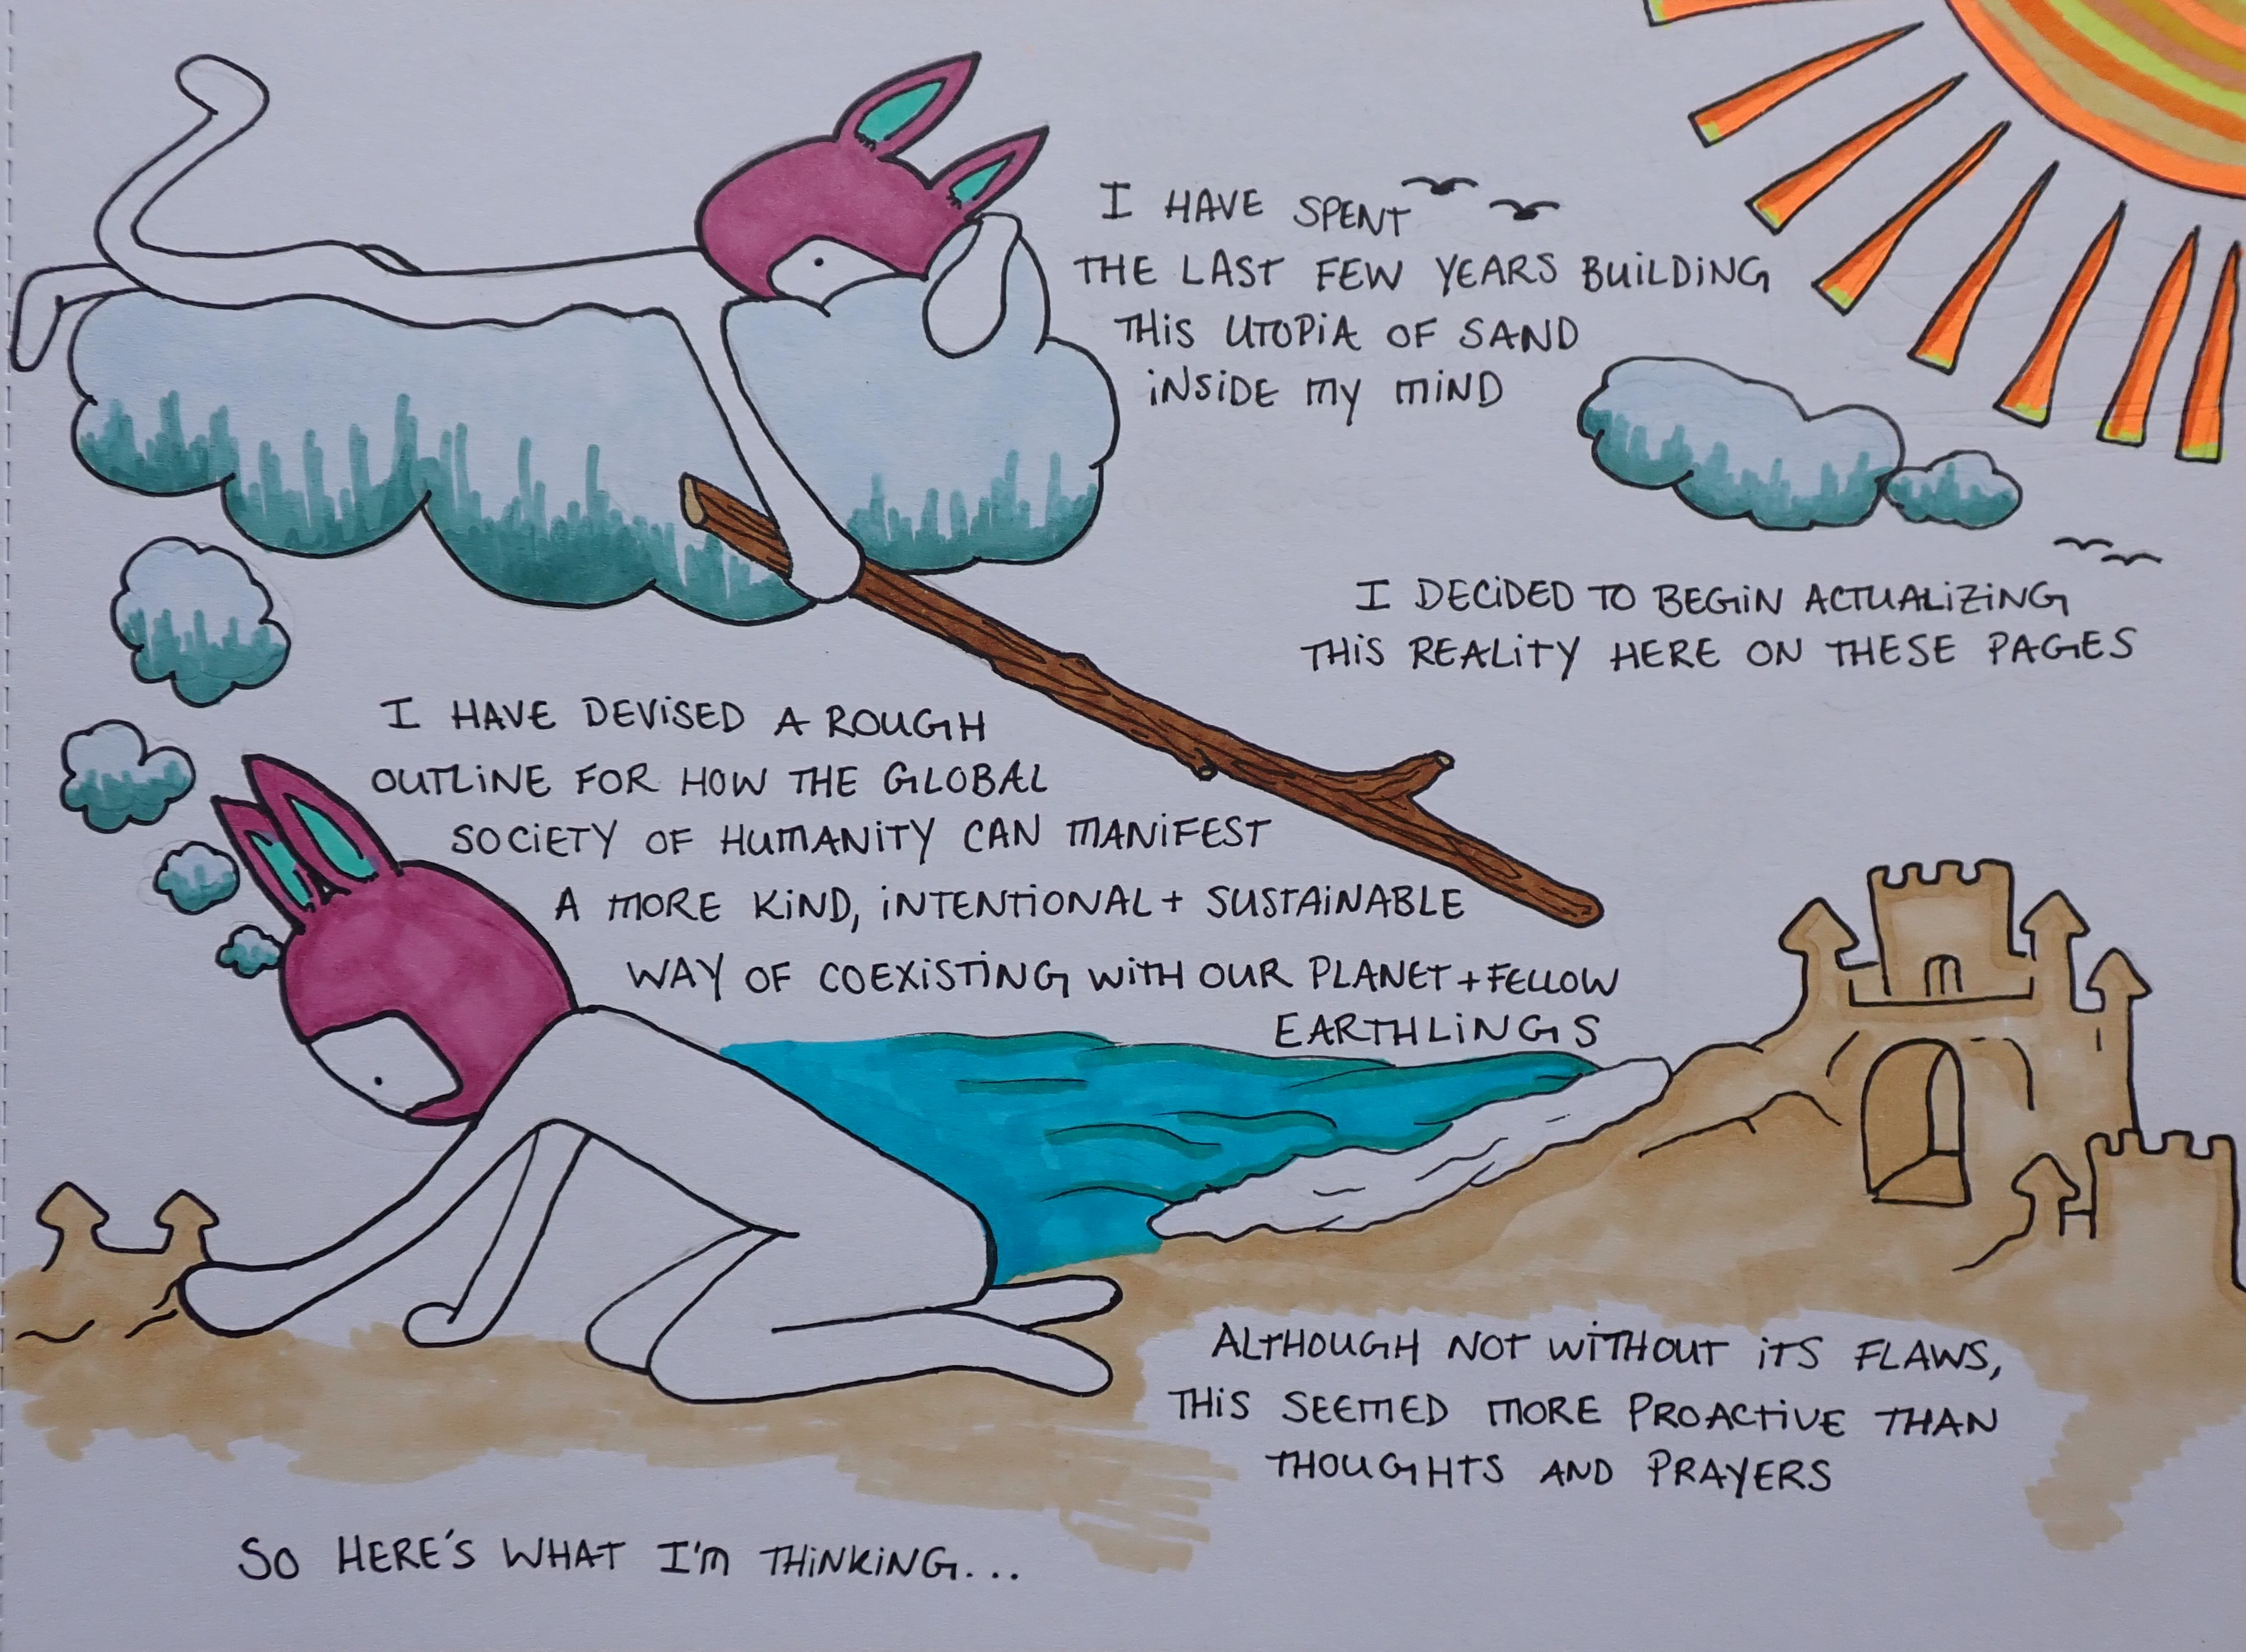 I HAVE SPENT
THE LAST FEW YEARS BUILDING
THIS UTOPIA OF SAND
INSIDE MY MIND
I DECIDED TO BEGIN ACTUALIZING
THIS REALITY HERE ON THESE PAGES
I HAVE DEVISED A ROUGH
OUTLINE FOR HOW THE GLOBAL
SOCIETY OF HUMANITY CAN MANIFEST
A MORE KIND, INTENTIONAL + SUSTAINABLE
WAY OF COEXISTING WITH OUR PLANET + FELLOW
EARTHLINGS
ALTHOUGH NOT WITHOUT ITS FLAWS,
THIS SEEMED MORE PROACTIVE THAN
THOUGHTS AND PRAYERS
SO HERE'S WHAT I'M THINKING...